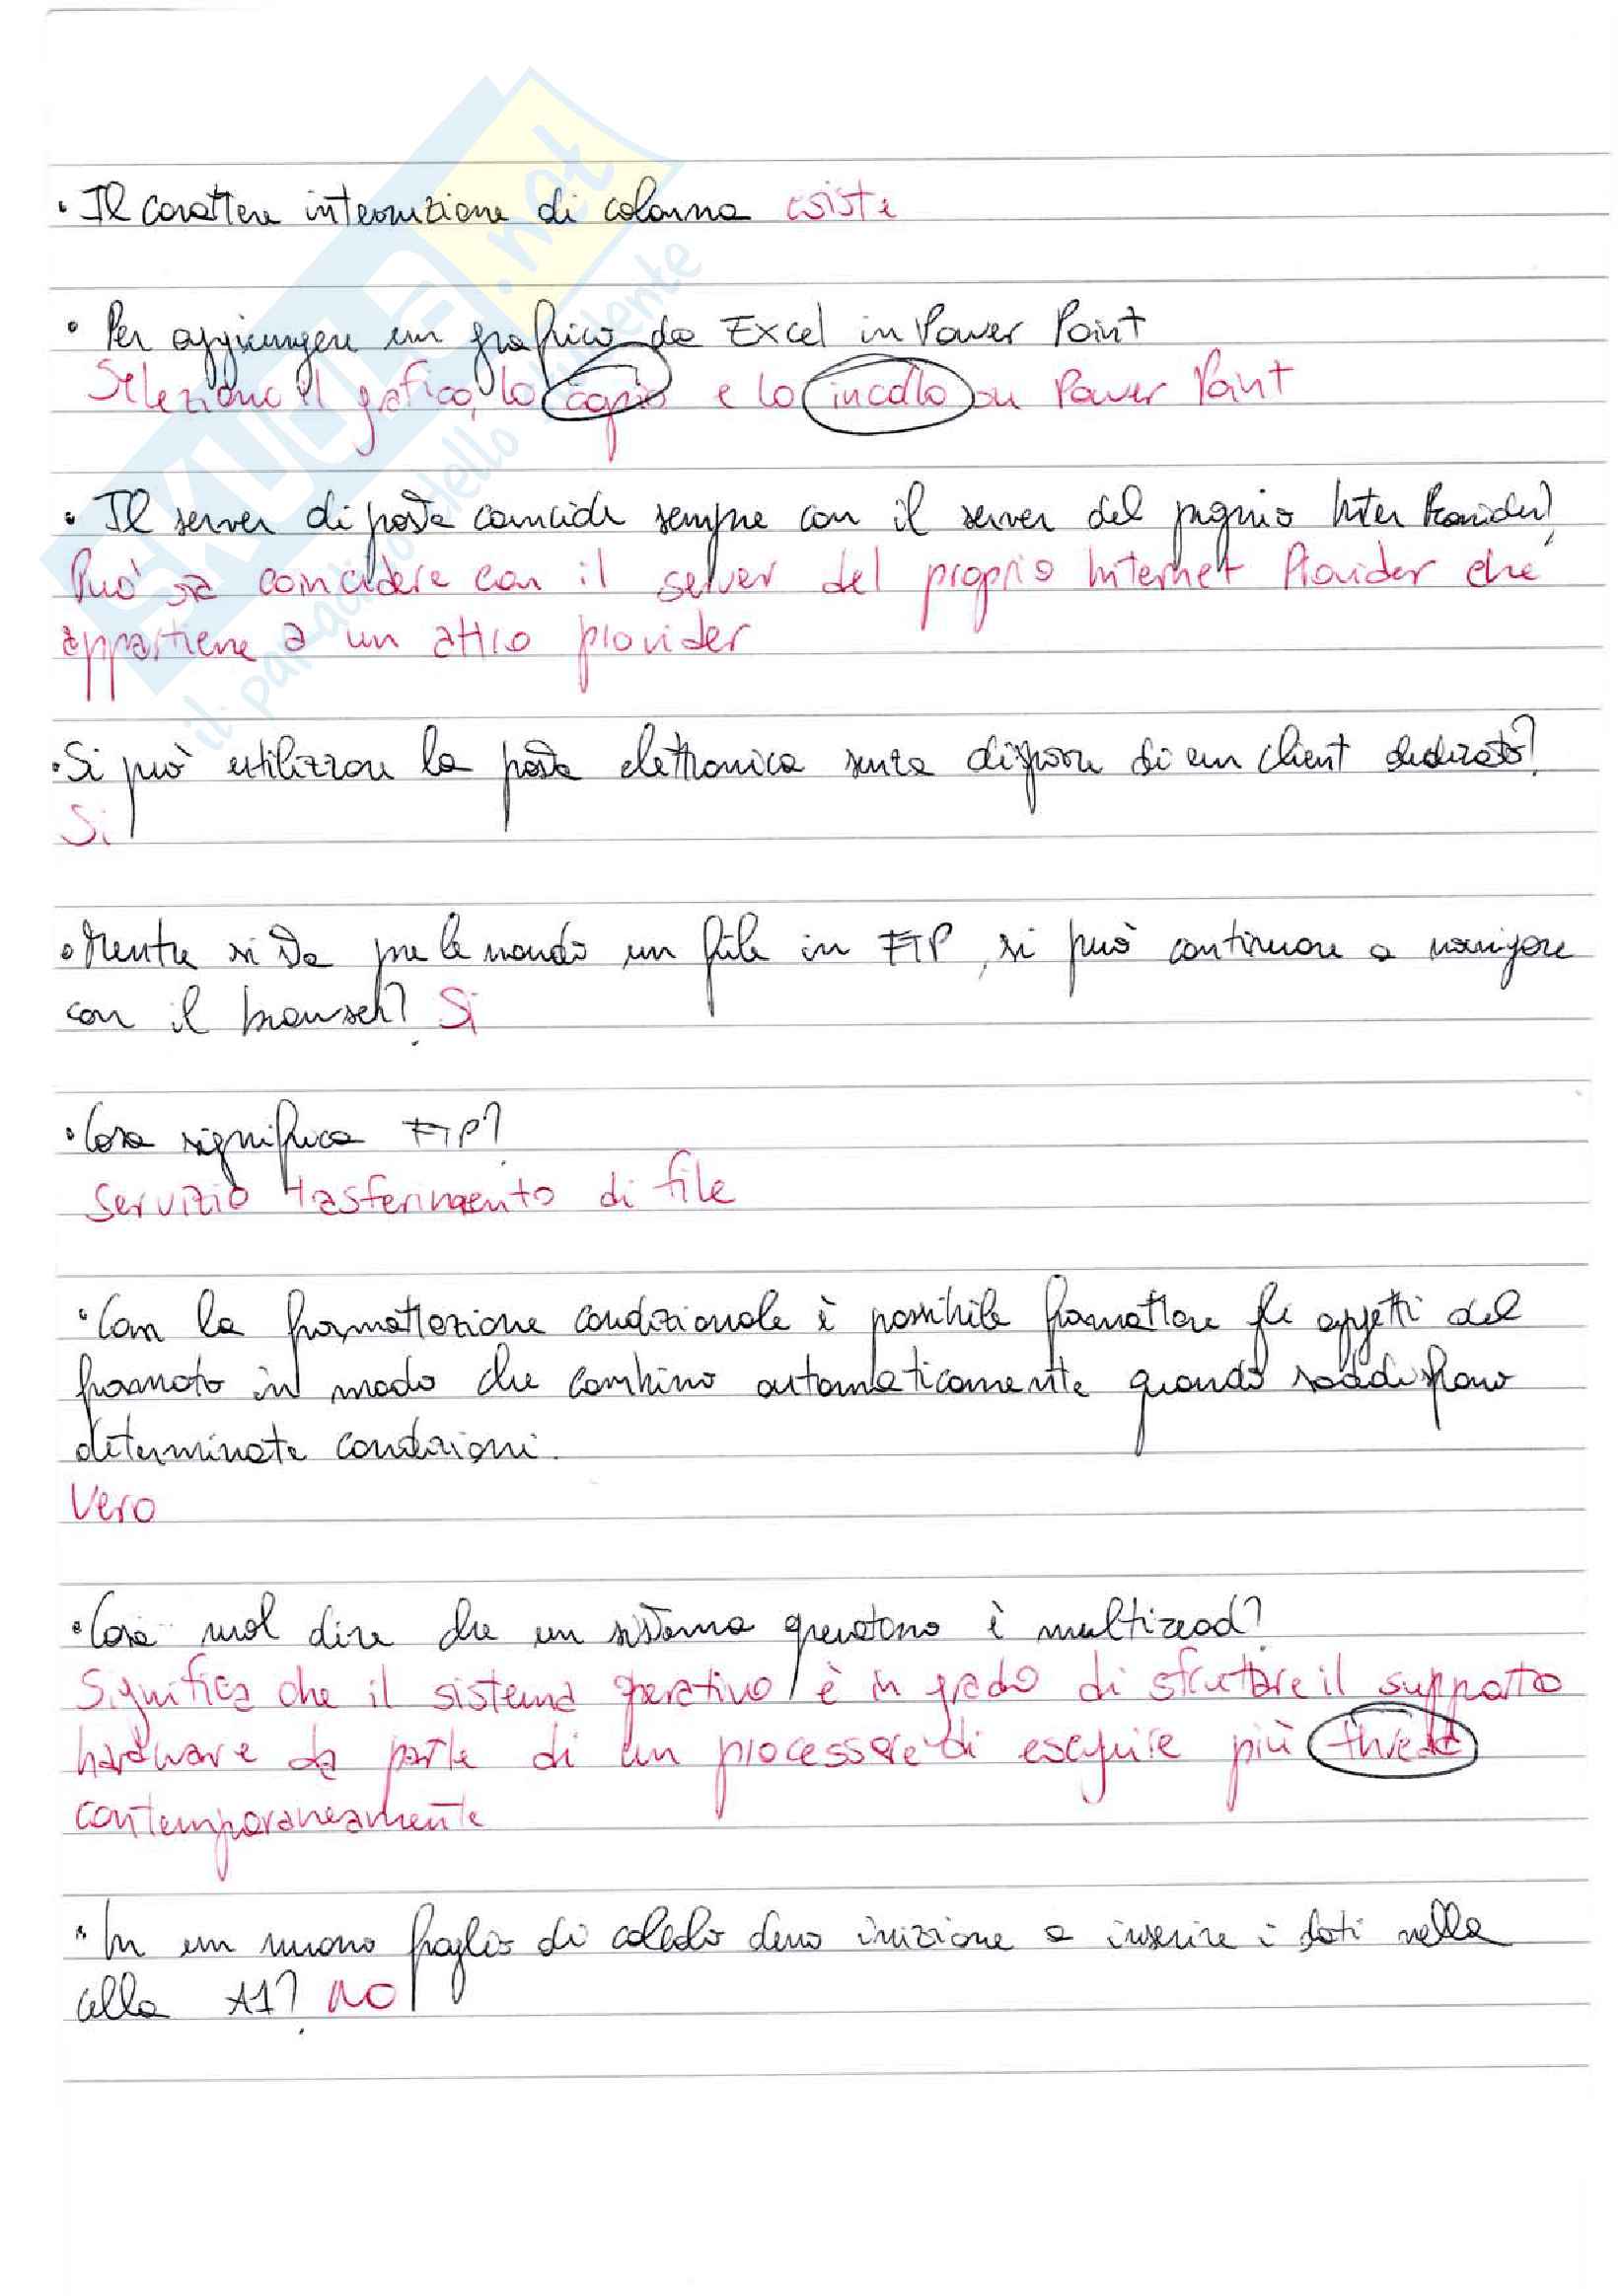 • Il carattere interruzione di colonna esiste
• Per aggiungere un grafico da Excel in Power Point
Seleziono il grafico, lo copio e lo incollo su Power Point
• Il server di posta coincide sempre con il server del proprio Inter Provider?
Può sia coincidere con il server del proprio Internet Provider che
appartiene a un altro provider
• Si può utilizzare la posta elettronica senza disporre di un client dedicato?
Si
• Mentre si sta prelevando un file in FTP, si può continuare a navigare
con il browser? Si
• Cosa significa FTP?
Servizio trasferimento di file
• Con la formattazione condizionale è possibile formattare gli oggetti del
formato in modo che cambino automaticamente quando soddisfano
determinate condizioni.
Vero
• Cosa vuol dire che un sistema operativo è multiread?
Significa che il sistema operativo è in grado di sfruttare il supporto
hardware da parte di un processore di eseguire più thread
contemporaneamente
• In un nuovo foglio di calcolo devo iniziare a inserire i dati nella
cella A1? NO
SKUOLA.net
il paradiso dello studente